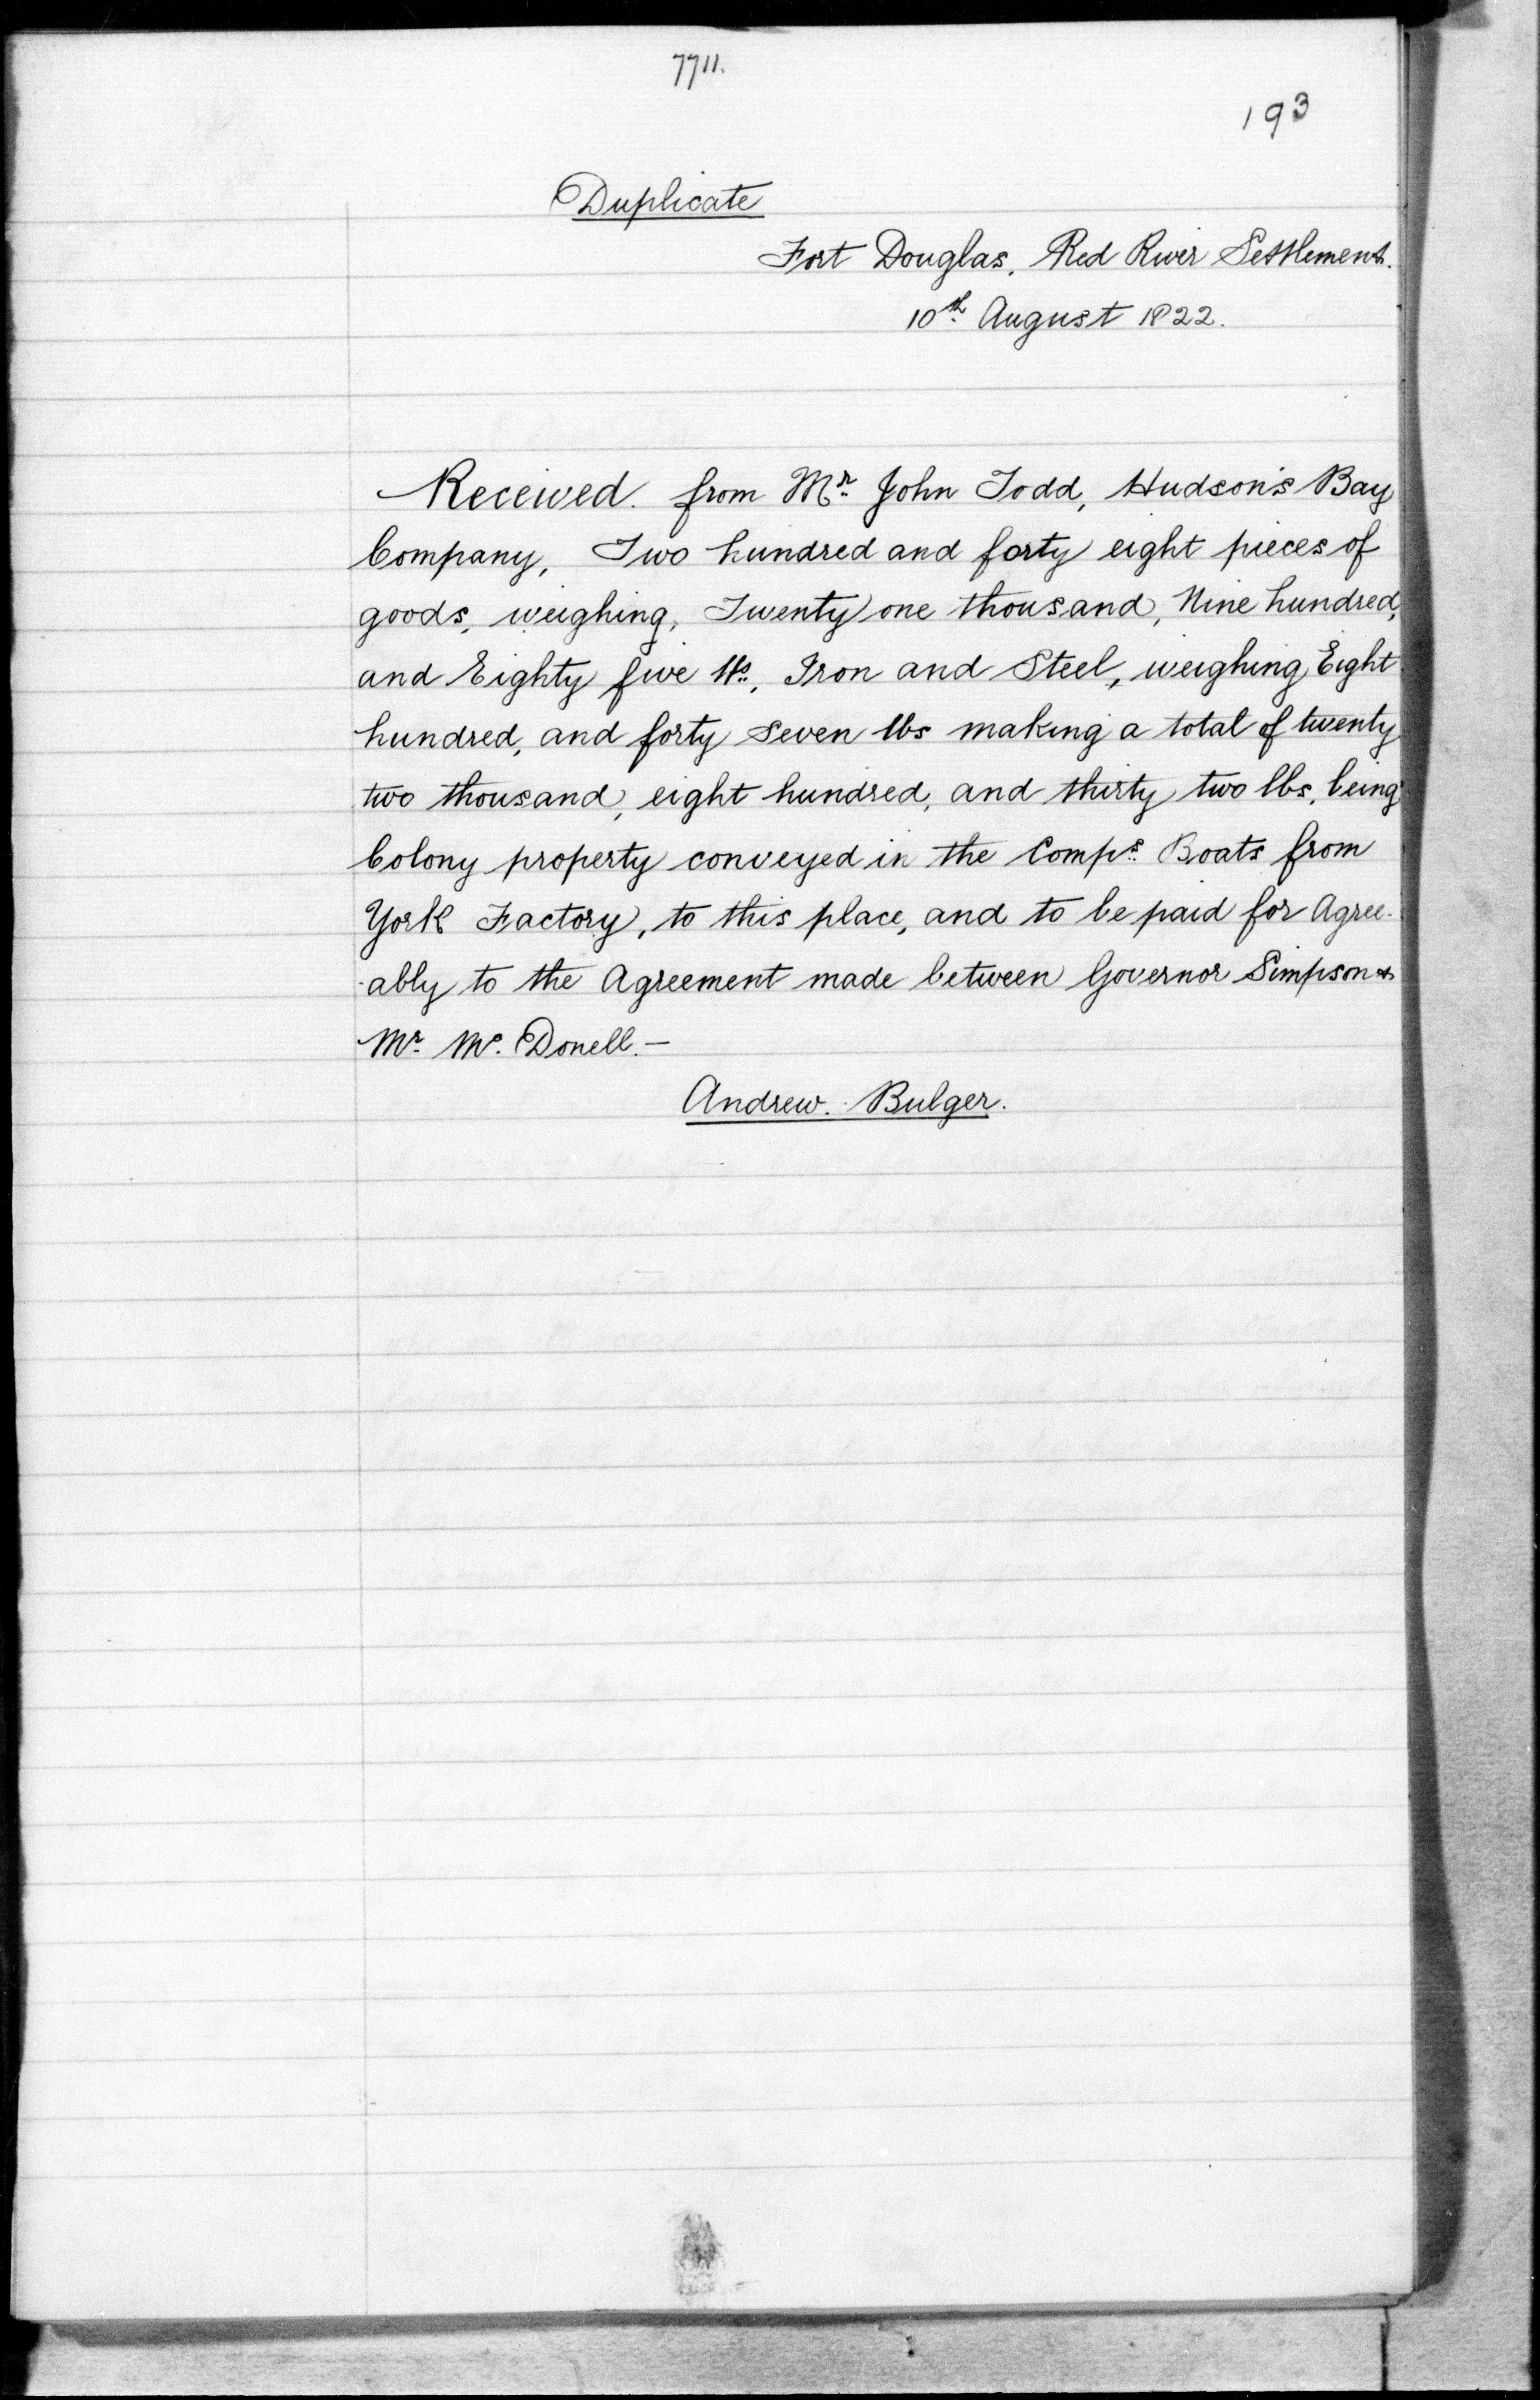 7711.
193
Duplicate
Fort Douglas, Red River Settlement.
10th August 1822.
Received from Mr. John Todd, Hudson's Bay
Company, Two hundred and forty eight pieces of
goods, weighing, Twenty one thousand, Nine hundred,
and Eighty five lbs., Iron and Steel, weighing Eight
hundred, and forty seven lbs making a total of twenty
two thousand, eight hundred, and thirty two lbs, being
Colony property conveyed in the Comps. Boats from
York Factory, to this place, and to be paid for Agree-
-ably to the Agreement made between Governor Simpson &
Mr. Mc. Donell.—
Andrew. Bulger.